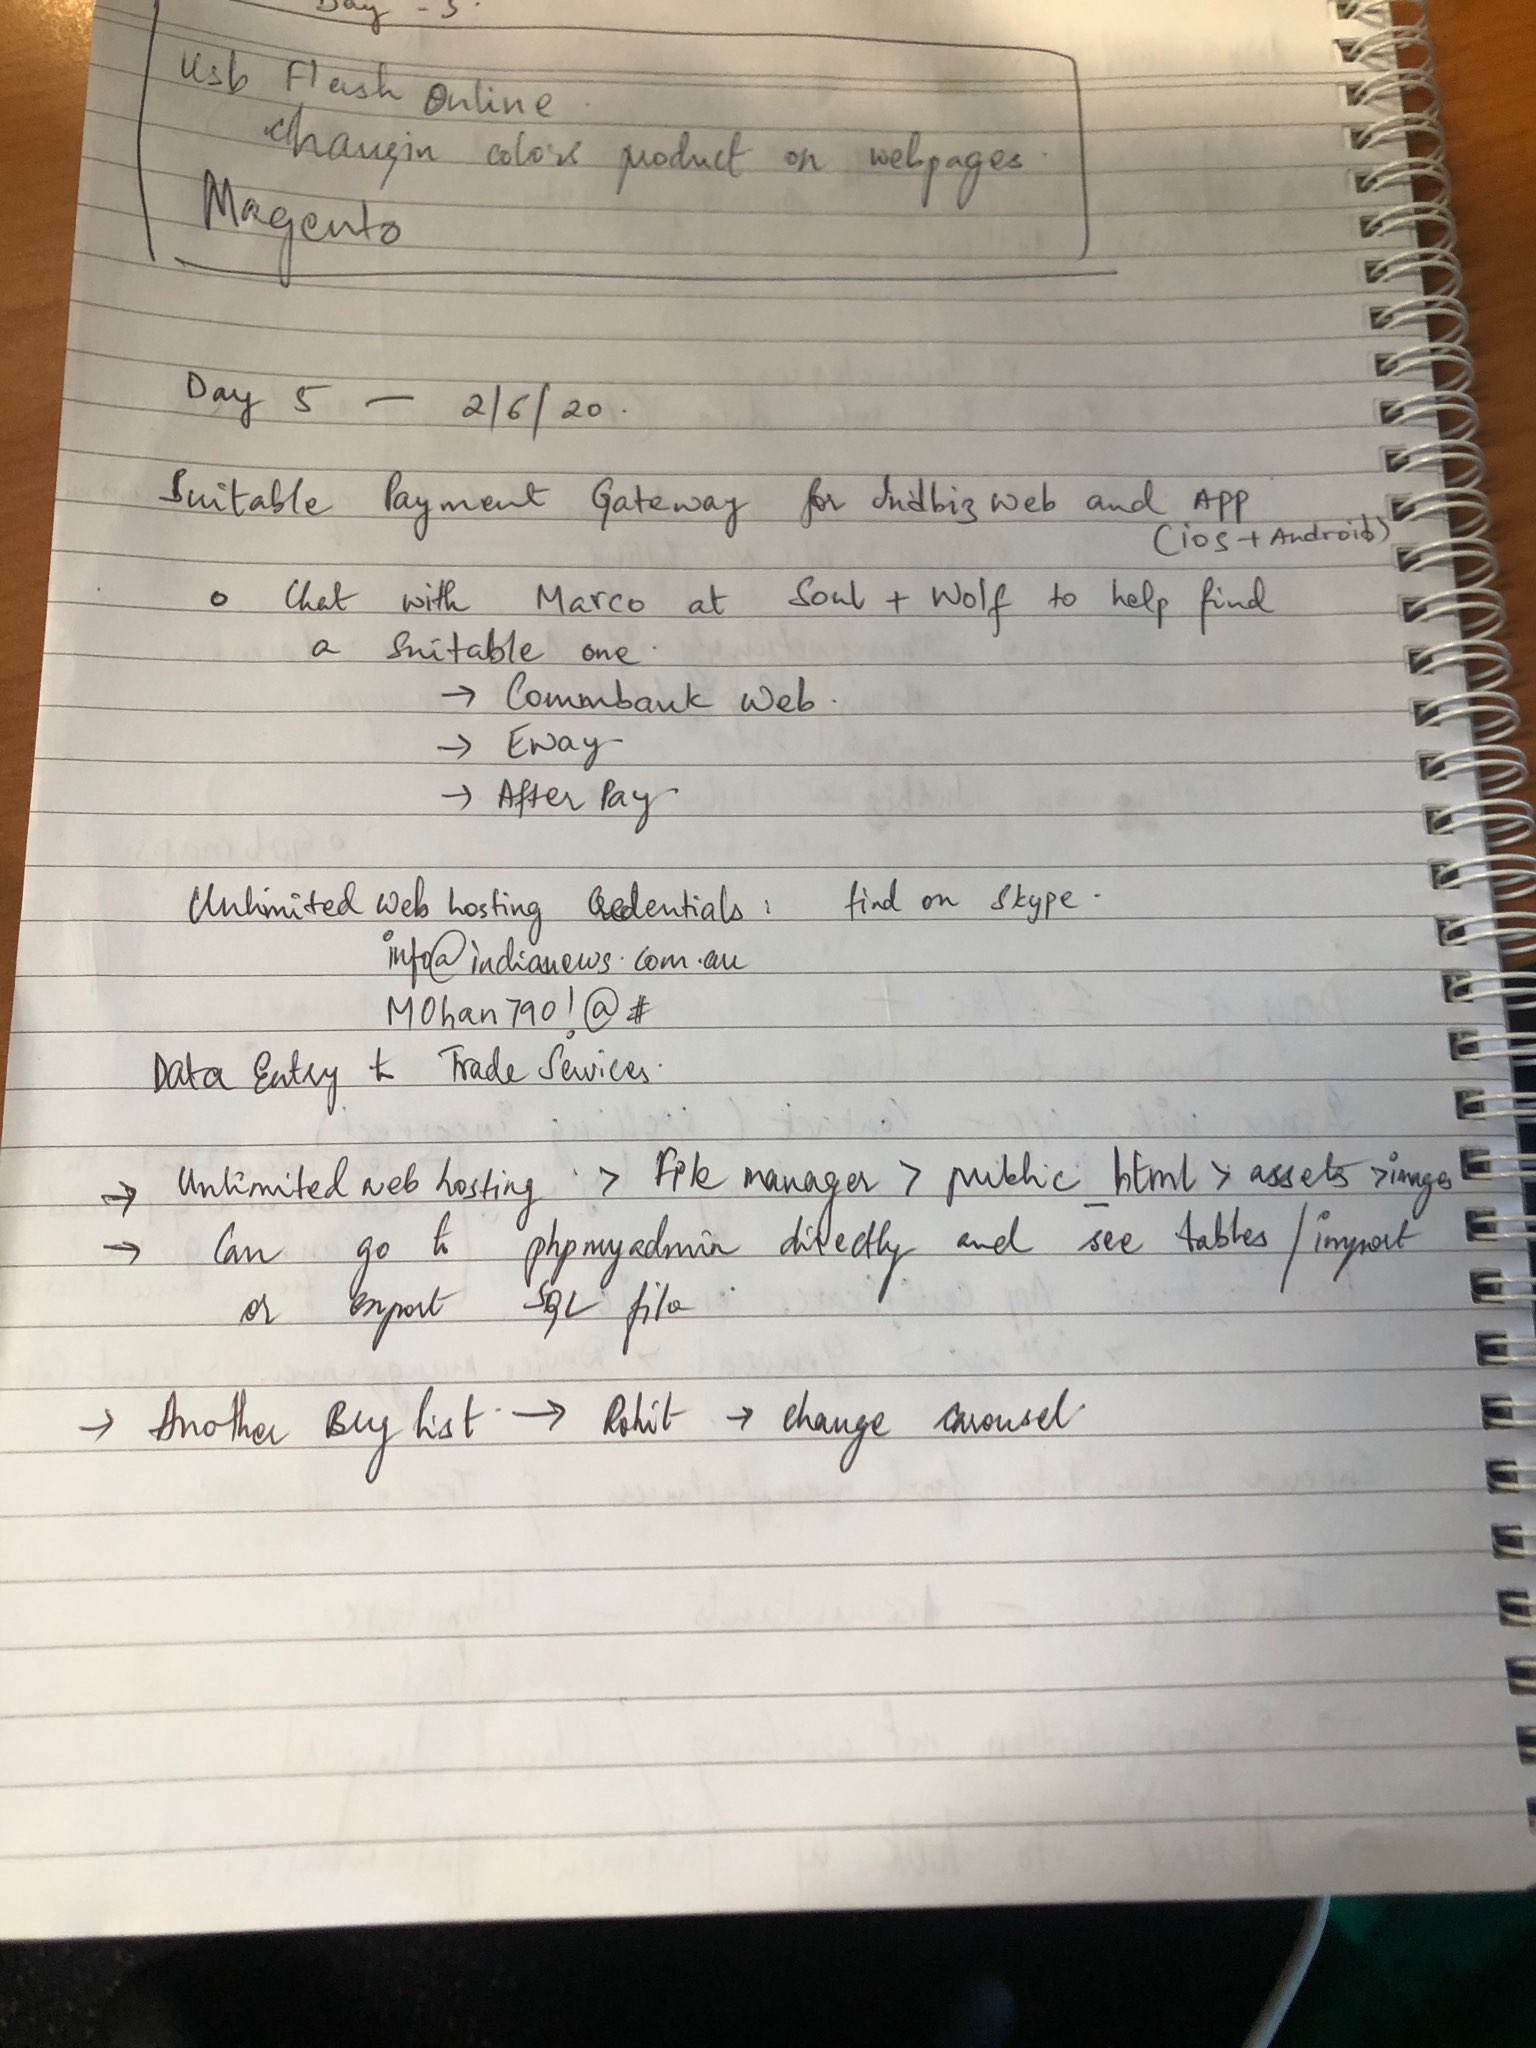 Day - 3.
Usb Flash Online.
changin colors product on webpages.
Magento
Day 5 — 2/6/20.
Suitable Payment Gateway for Indbiz web and App
(ios + Android)
o Chat with Marco at Soul + Wolf to help find
a suitable one.
→ Commbank Web.
→ Eway
→ After Pay
Unlimited web hosting Credentials: find on Skype.
info@indianews.com.au
MOhan790!@#
Data Entry to Trade Services.
→ Unlimited web hosting > File manager > public_html > assets > images
→ Can go to phpmyadmin directly and see tables / import
or export SQL file
→ Another Bug list. → Rohit → change carousel.